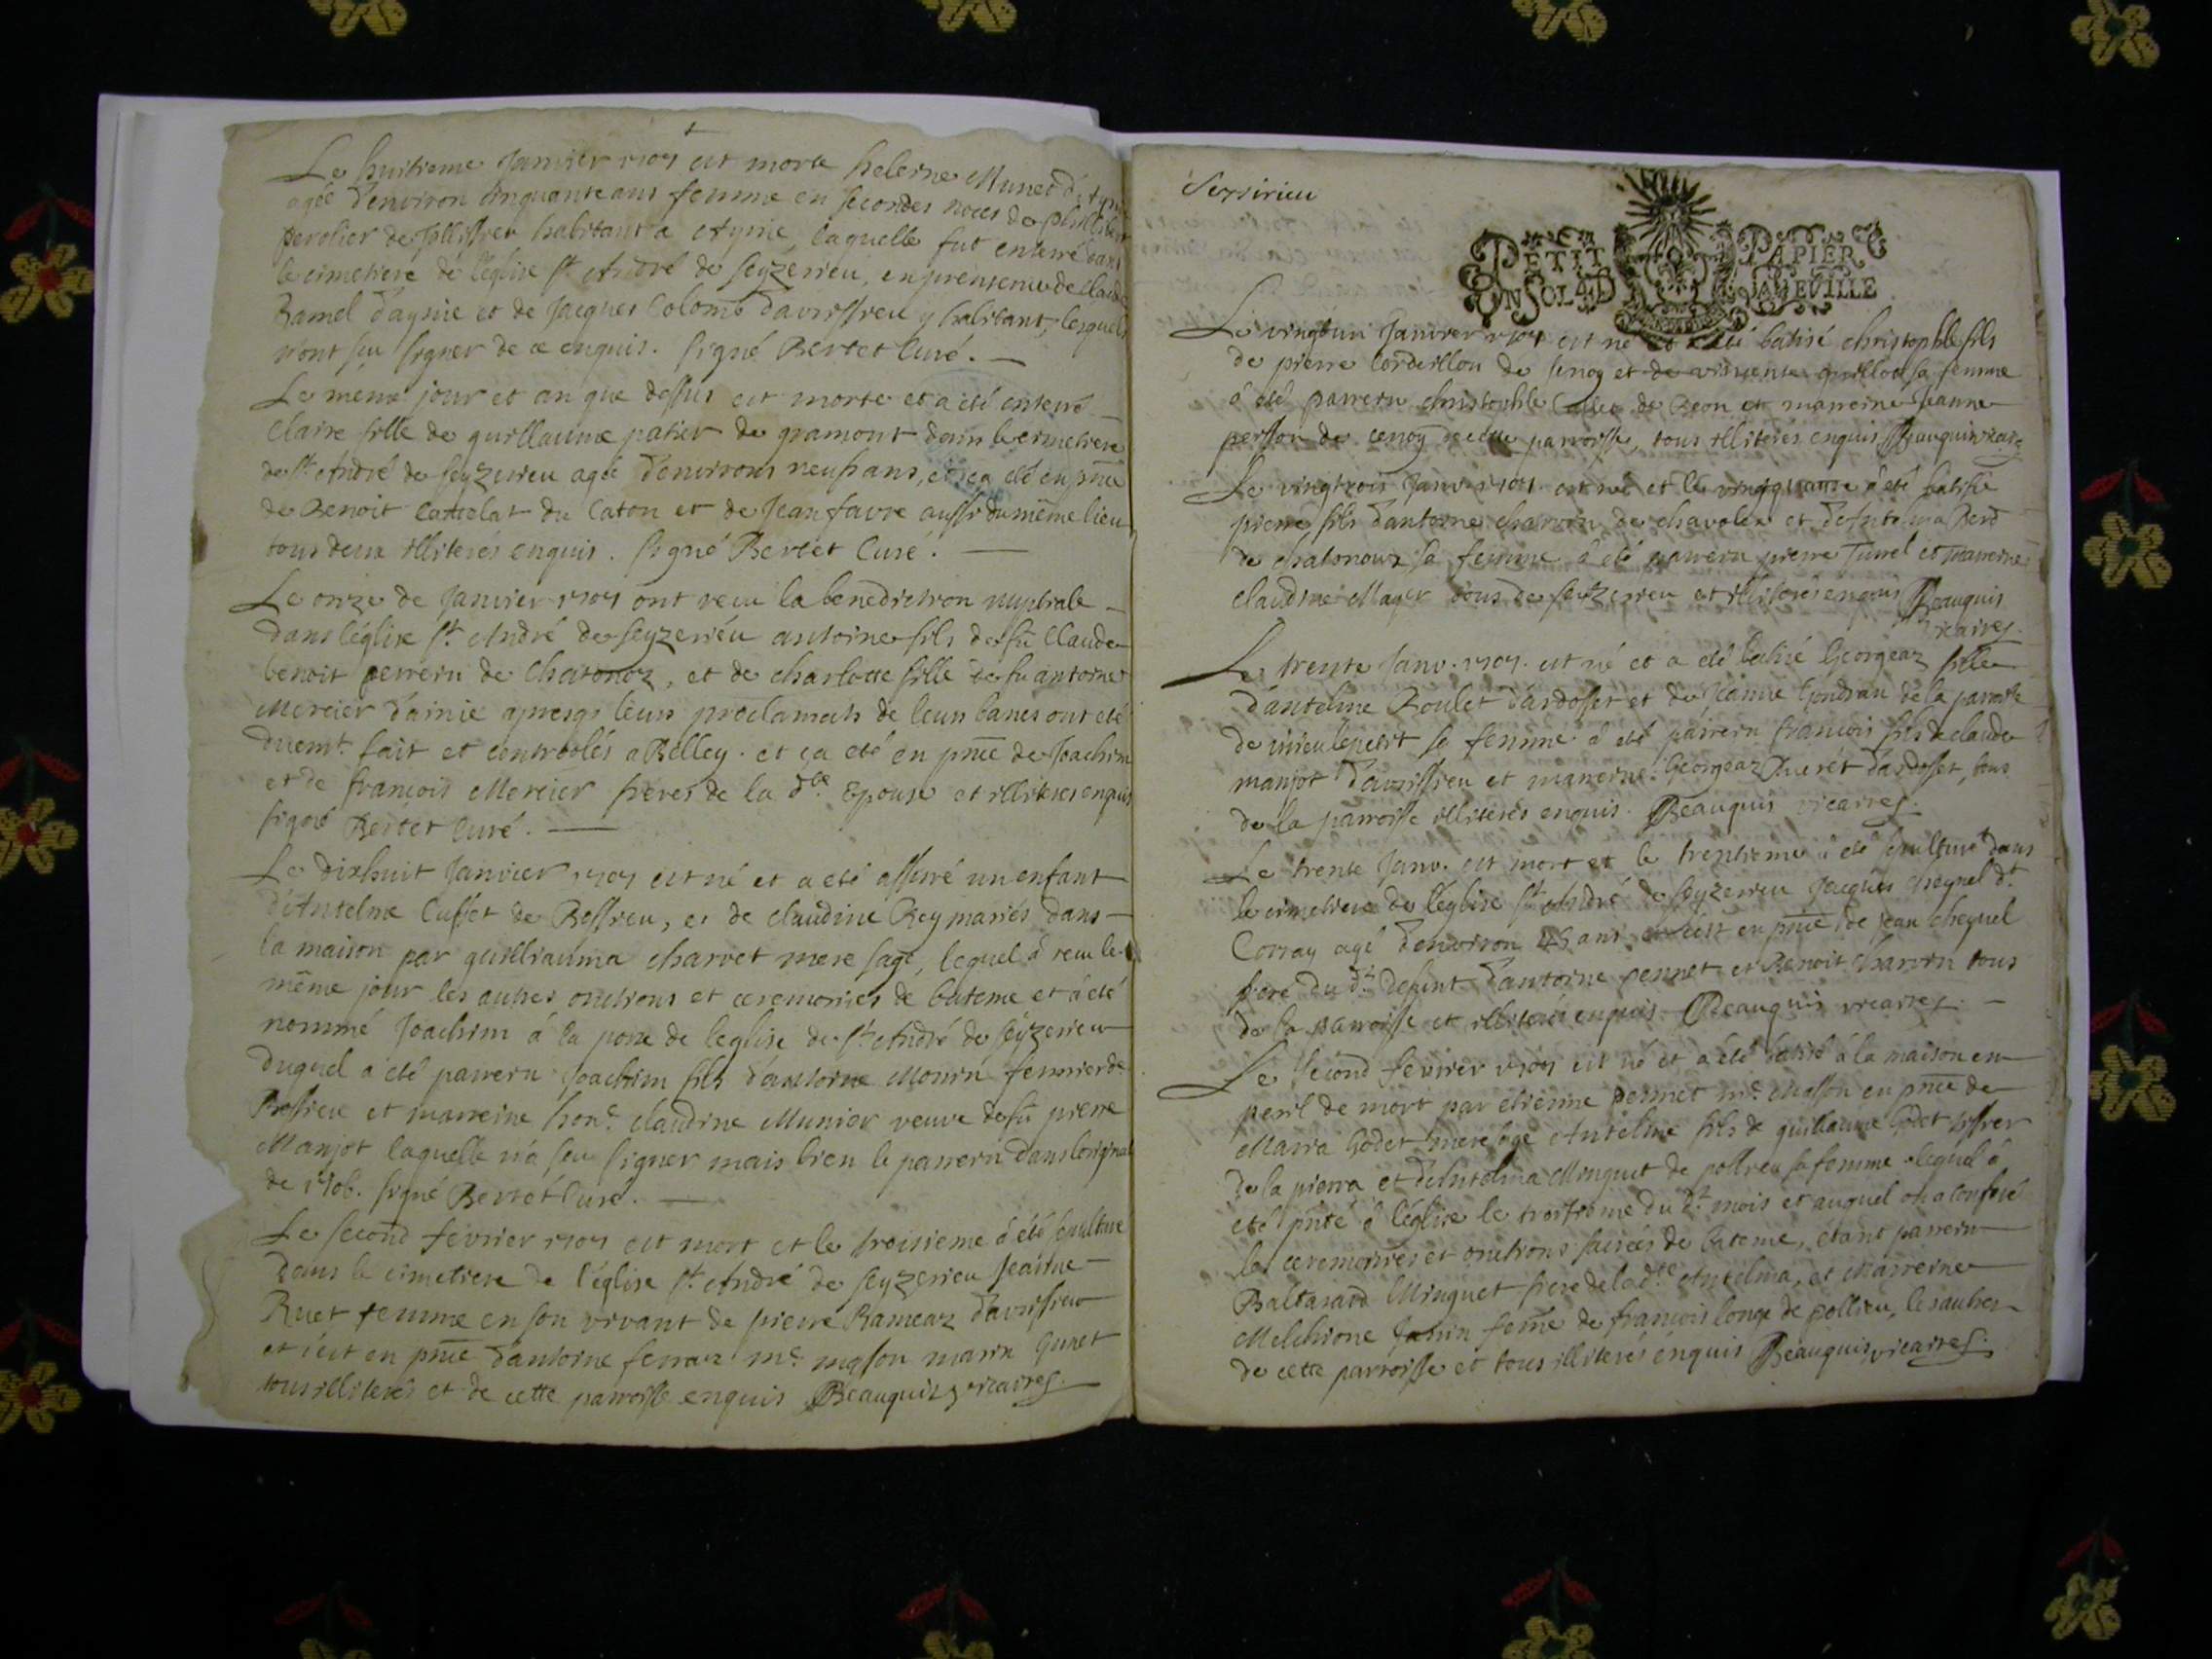 Le huitieme Janvier 1707 est morte helerne Munet d'Ayni
agée d'environ cinquante ans femme en secondes noces de philibert
perolier de habitant a Aynie, laquelle fut enterré dans
le cimetiere de l'église st André de seyzerieu, en presence de claude
Ramel d'aynie et de Jacques Colomb d'avrissieu y habitant, lesquels
n'ont seu signer de ce enquis. signé Bertet Curé.
Le meme jour et an que dessus est morte et a été enterré
Claire fille de guillaume patier de gramont dans le cimetiere
de st André de seyzerieu agée d'environs neuf ans, et ça été en pnce
de Benoit Cancelat du Caton et de Jean favre aussi du même lieu
tous deux illiterés enquis. signé Bertet Curé.
Le onze de Janvier 1707 ont receu la benediction nuptiale
dans l'église st André de seyzerieu antoine fils de fû Claude
benoit perrein de Chatonoz, et de charlotte fille de fu antoine
Mercier d'ainie apres qs leurs proclamats de leurs bancs ont eté
duemt. fait et controolés a Belley. et ça eté en pnce de Joachim
et de françois Mercier freres de la dte Epouse et illiterés enquis
signé Bertet Curé.
Le dixhuit Janvier 1707 est né et a eté assuré un enfant
d'Antelme Cusset de Bessieu, et de claudine Rey mariés dans
la maison par guilliauma charvet mere sage, lequel a receu le
même jour les autres onctions et ceremonies de bateme et a eté
nommé Joachim à la porte de leglise de st André de seyzerieu
duquel a eté parrein Joachim fils d'antoine Monin fermier de
Bessieu et marreine honē claudine Munier veuve de fû pierre
Manjot laquelle n'a seu signer mais bien le parrein dans loriginal
de 1706. signé Bertet Curé.
Le second fevrier 1707 est mort et le troisieme a été sepulture
dans le cimetiere de l'église st André de seyzerieu Jeanne
Ruet femme en son vivant de pierre Rameaz d'avrissieu
et c'est en pnce d'antoine ferraz me masson marin Gunet
tous illiterés et de cette parroisse enquis Beauquis vicaires.
Seyzirieu
PETIT PAPIER
UN SOL 4 D LA FEUILLE
Le vingtun Janvier 1707 est né et a eté batisé christophle fils
de pierre Cordeillou de senoy et de guillot sa femme
a eté parrein christophle Callet de Beon et marreine Jeanne
person de cenoy de cette parroisse, tous illiterés enquis Beauquis vicaires
Le vingtrois Janv. 1707. est né et le vingtquatre a été batisé
pierre fils d'antoine charvin de chavolex et d'Antelma Berd
de chatonoux sa femme a été parrein pierre Turrel et marreine
claudine Mayer tous de seyzerieu et illiterés enquis Beauquis
vicaires.
Le trente Janv. 1707. est né et a eté batisé Georgeaz fille
d'antelme Roulet d'ardosset et de Jeanne Gondran de la parroisse
de virieu le petit sa femme a été parrein françois fils de claude
manjot d'avrissieu et marreine Georgeaz Ducret d'ardosset, tous
de la parroisse illiterés enquis. Beauquis vicaires.
Le trente Janv. est mort et le trentieme a eté sepulturé dans
le cimetiere de l'église st André de seyzerieu Jacques cheynel dt
Corray agé d'environ 45 ans c'est en pnce de jean cheynel
frere du dt defunt d'antoine pennet et Benoit charvin tous
de la parroisse et illiterés enquis Beauquis vicaires.
Le second fevrier 1707 est né et a été batisé à la maison en
peril de mort par etienne permet me. masson en pnce de
Maria Godet mere sage Antelme fils de guillaume Godet tissier
de la pierra et d'Antelma Minguet de pollieu sa femme lequel a
eté pnté à l'église le troisieme du dt mois et auquel on a conferé
les ceremonies et onctions sacrées de bateme, étant parrein
Baltasard Minguet frere de la dte Antelma, et marreine
Melchione Janin feme de françois longe de pollieu, les autres
de cette parroisse et tous illiterés enquis Beauquis vicaires.